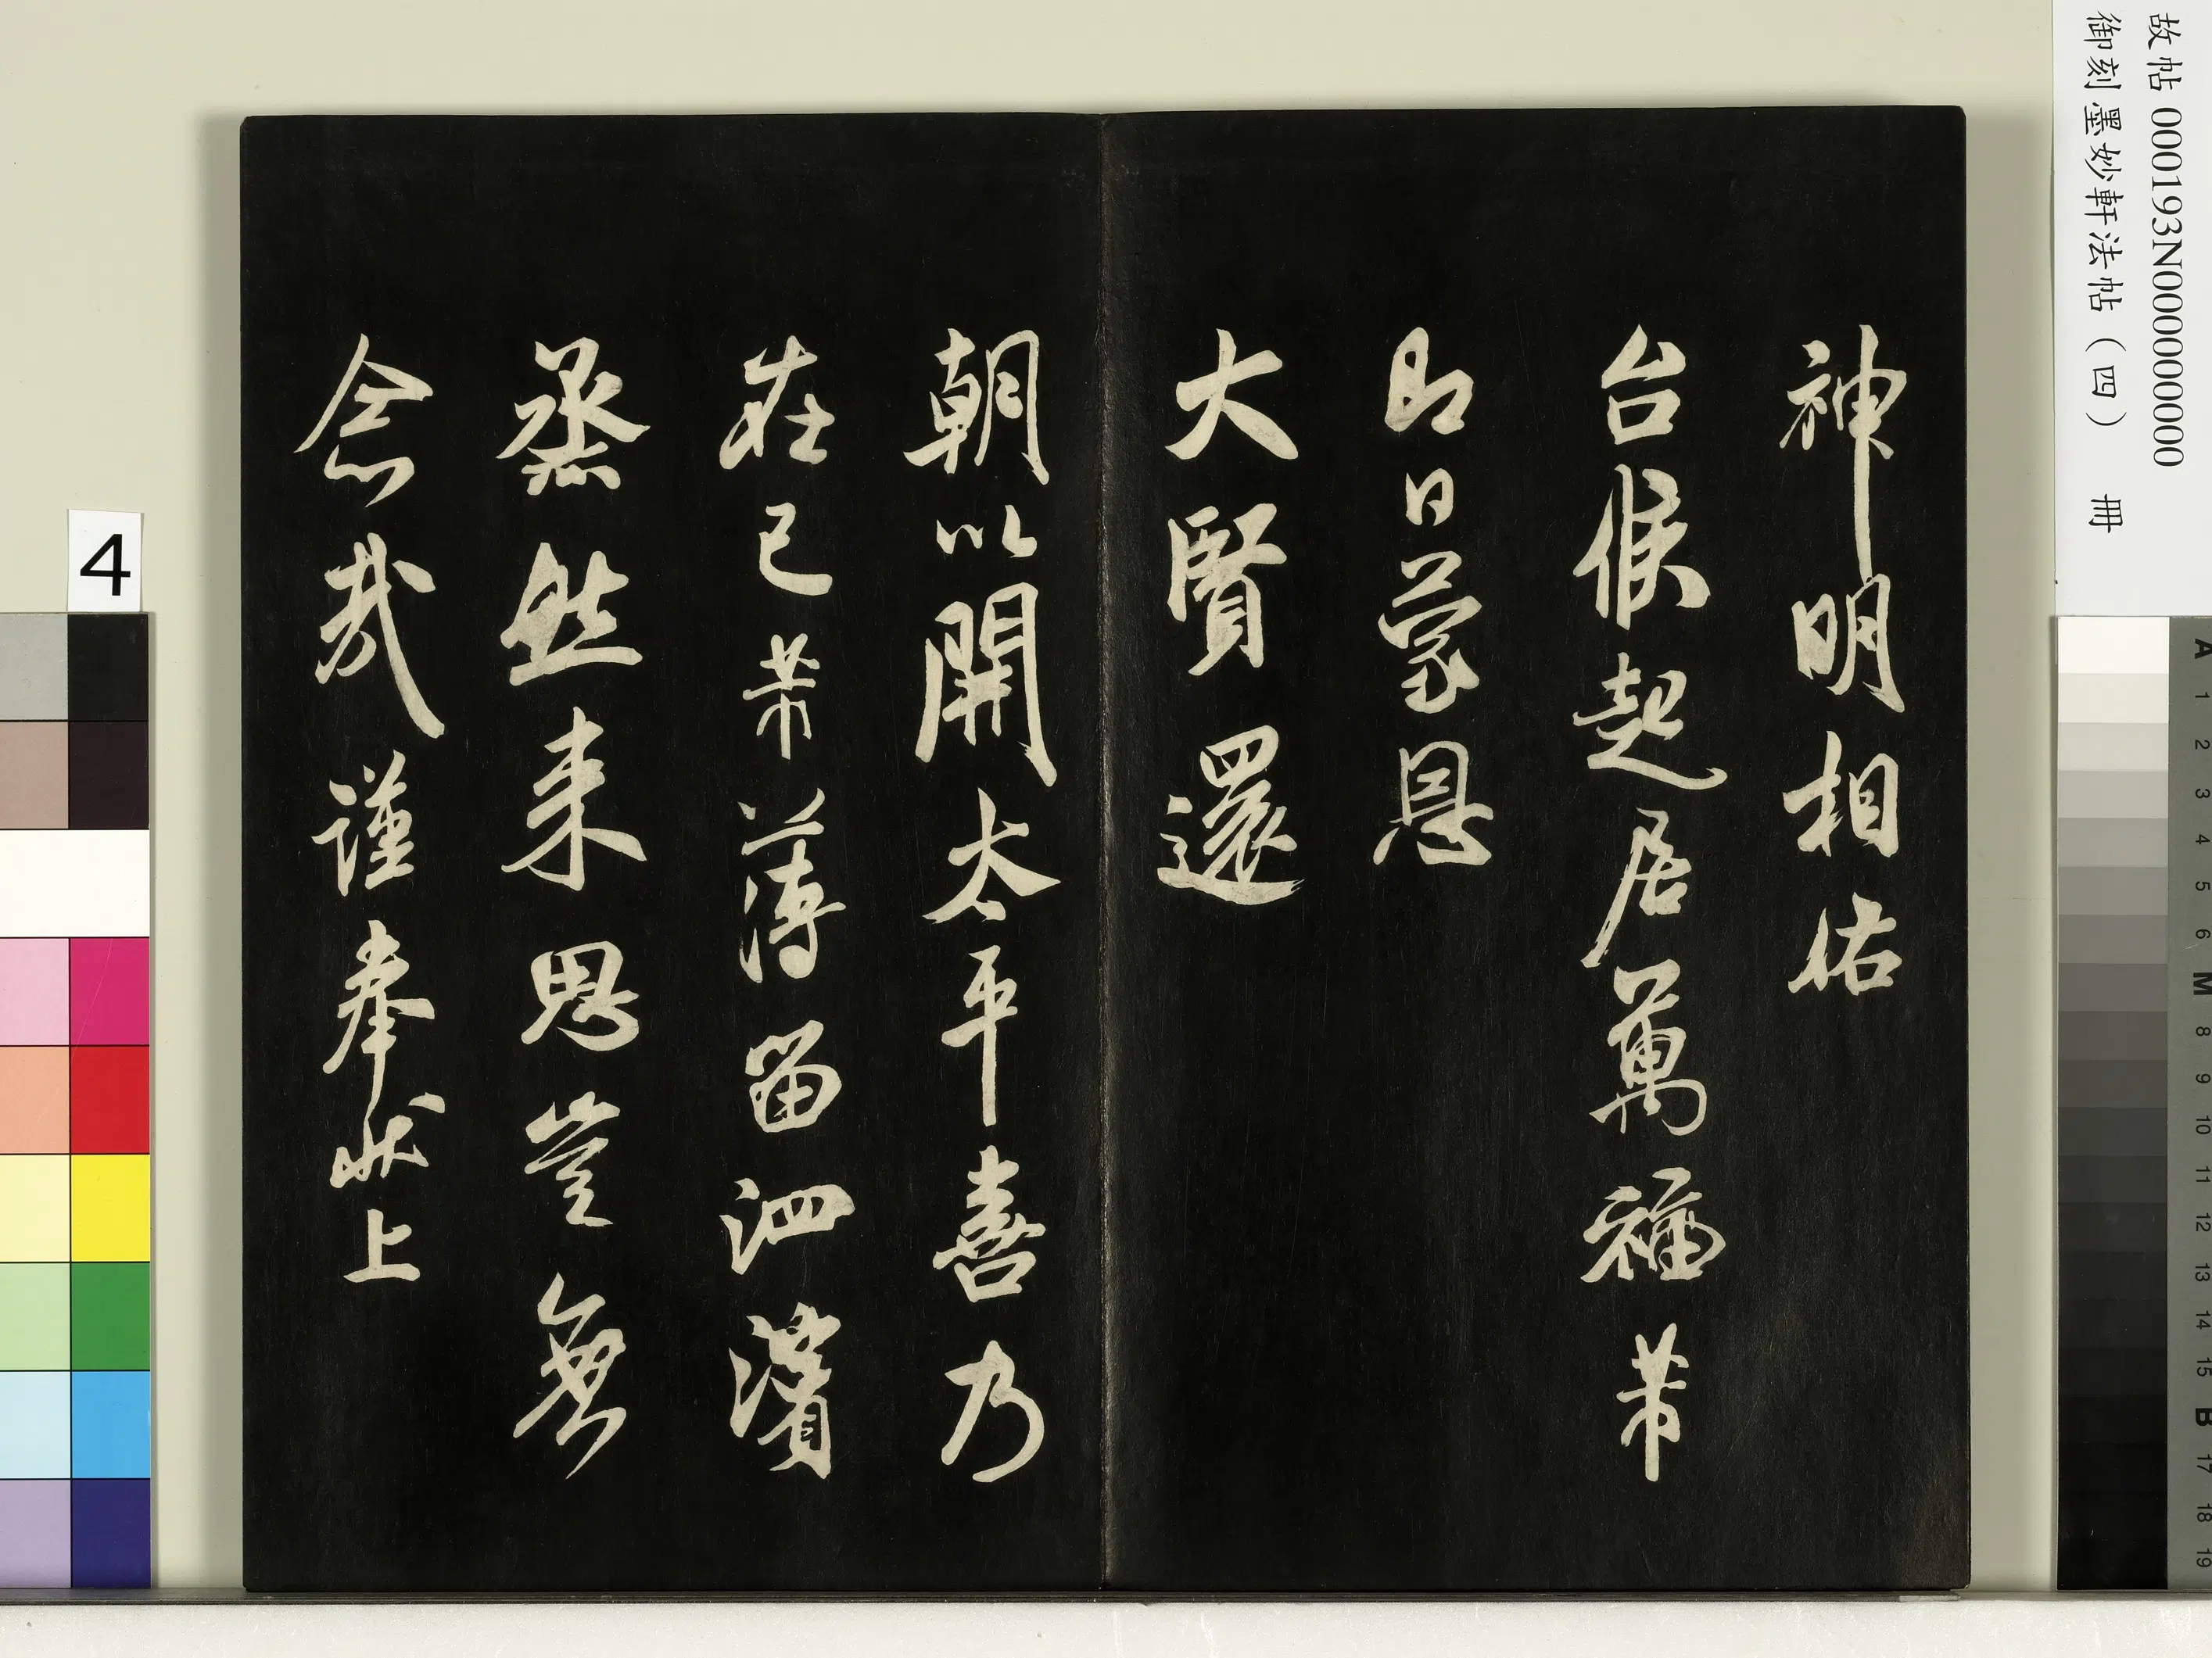 神明相佑
台候起居萬福芾
即日蒙恩
大賢還
朝以開太平喜乃
在己芾薄留泗濱
烝然来思豈無
念哉謹奉狀上
故帖 000193N000000000
御刻墨妙軒法帖（四） 冊
4
A 1 2 3 4 5 6 M 8 9 10 11 12 13 14 15 B 17 18 19